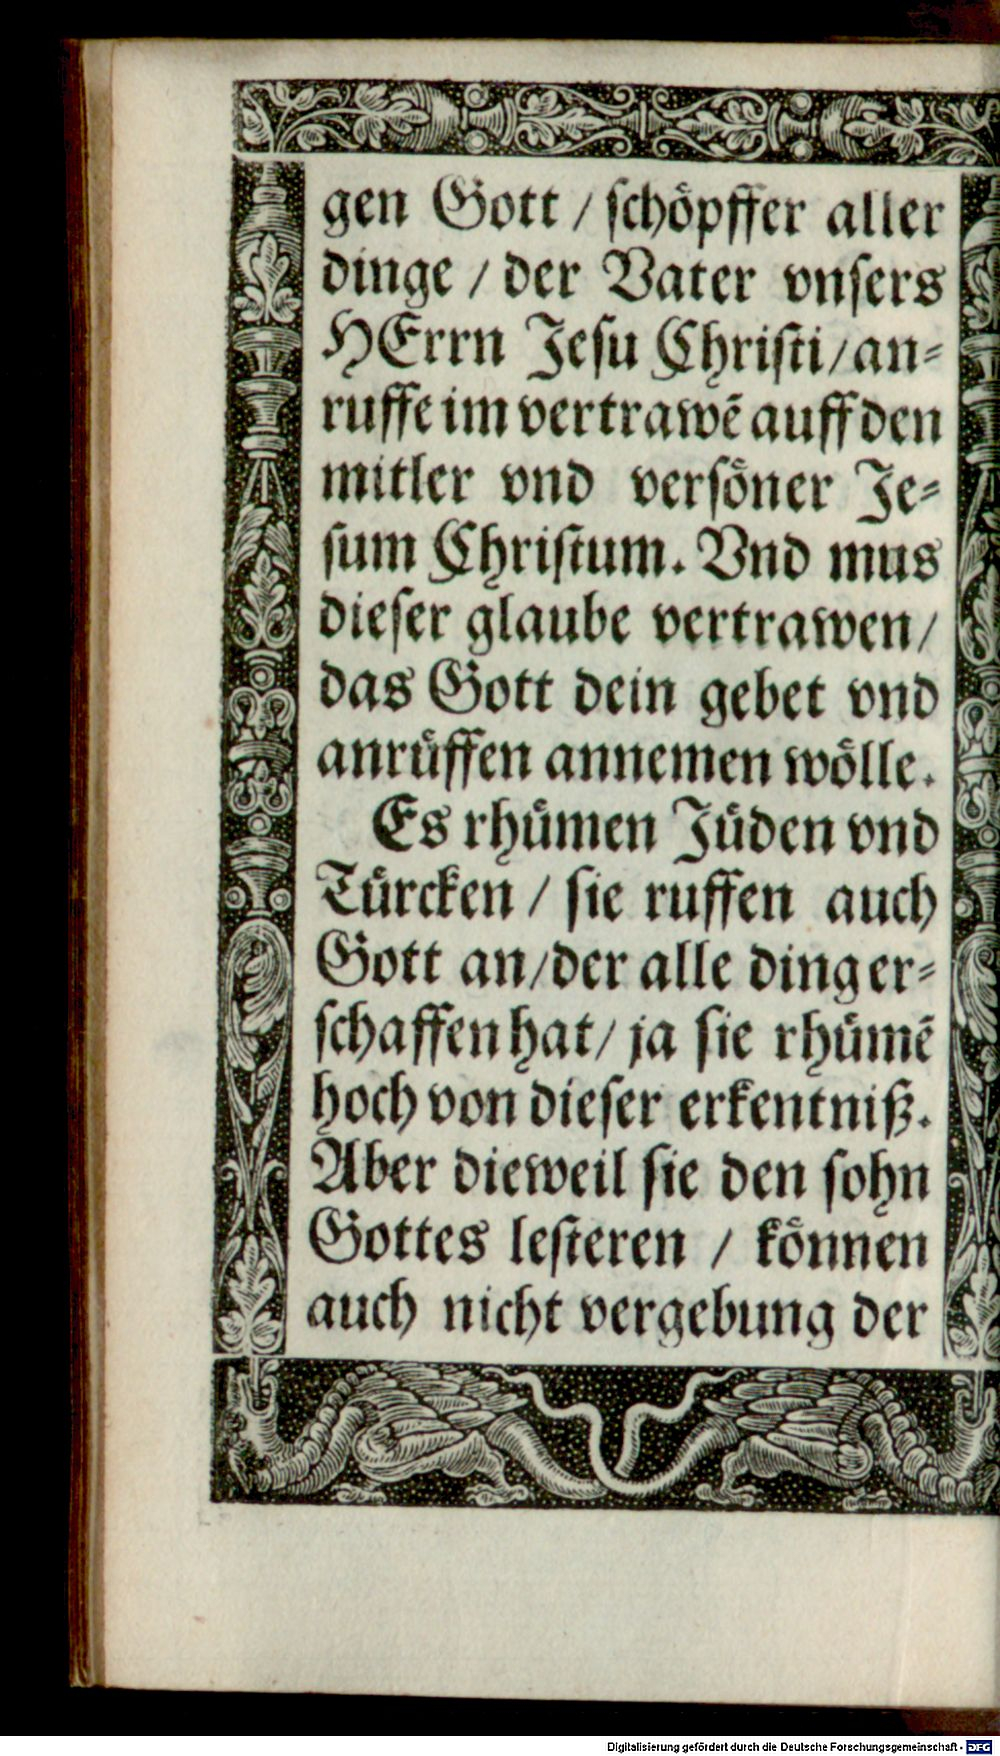 gen Gott / ſchoͤpffer aller
dinge / der Vater vnſers
HErrn Jeſu Chriſti / an⸗
ruffe im vertrawẽ auff den
mitler vnd verſoͤner Je⸗
ſum Chriſtum. Vnd mus
dieſer glaube vertrawen /
das Gott dein gebet vnd
anruͤffen annemen woͤlle.
Es rhuͤmen Juͤden vnd
Tuͤrcken / ſie ruffen auch
Gott an / der alle ding er⸗
ſchaffen hat / ja ſie rhuͤmẽ
hoch von dieſer erkentniß.
Aber dieweil ſie den ſohn
Gottes leſteren / koͤnnen
auch nicht vergebung der
Digitalisierung gefördert durch die Deutsche Forschungsgemeinschaft - DFG